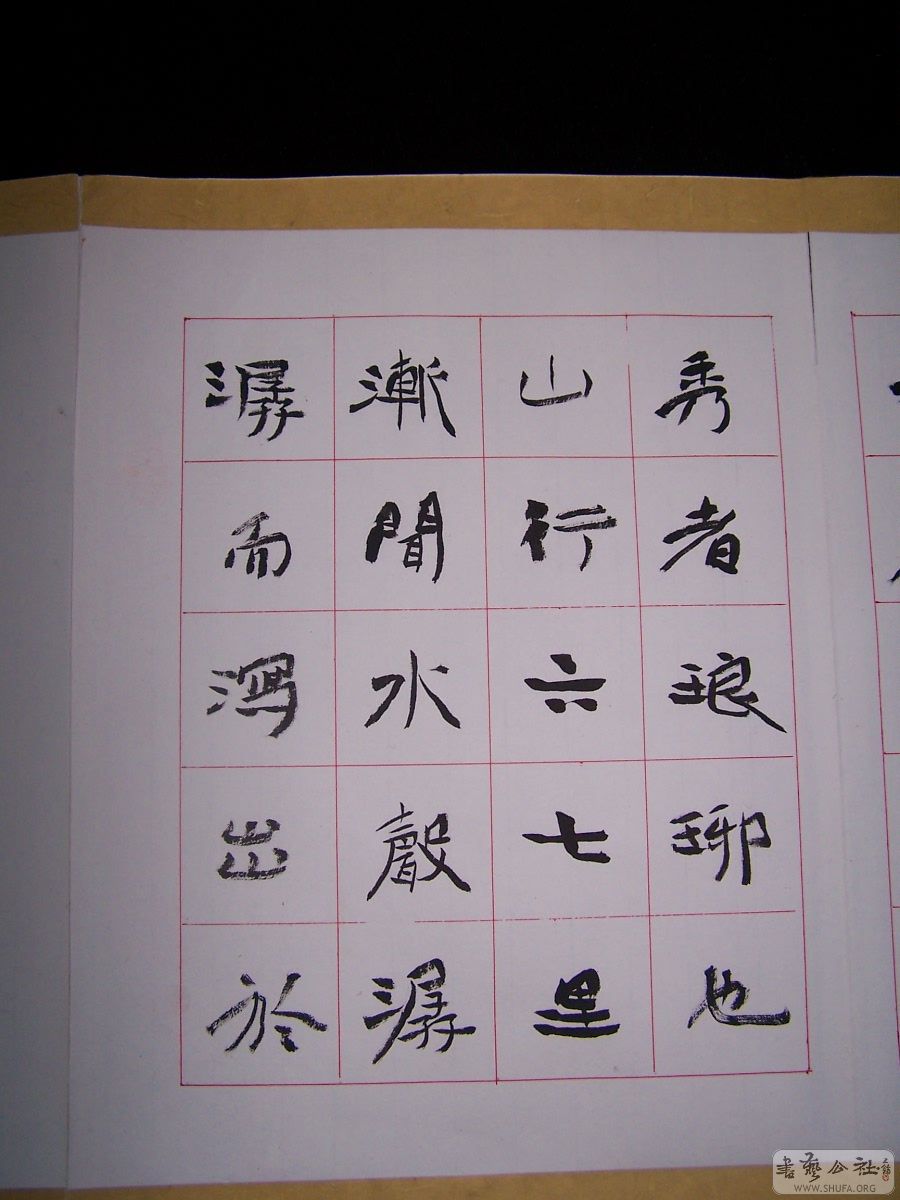 秀者琅琊也
山行六七里
漸聞水聲潺
潺而瀉出於
書藝公社
WWW.SHUFA.ORG